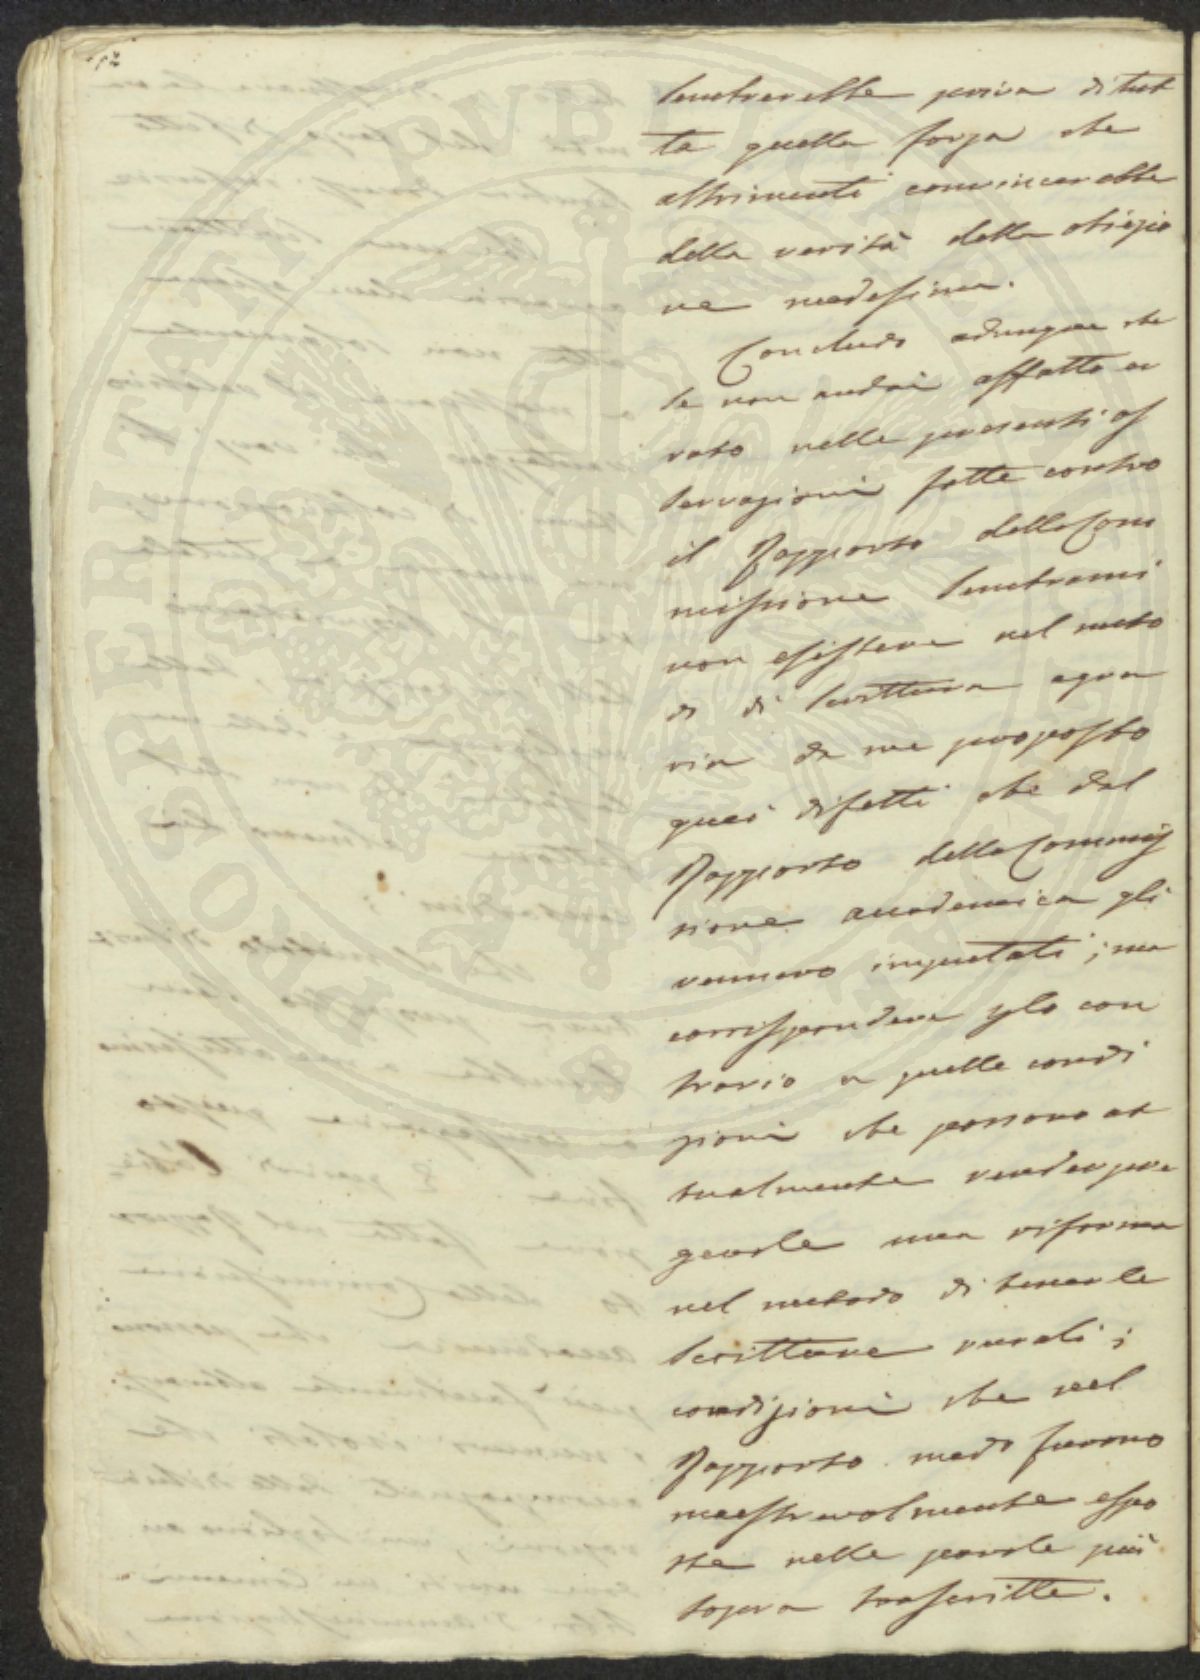 12
sembrerebbe priva di tut
ta quella forza che
altrimenti convincerebbe
della verità della obiezio
ne medesima.
Concludo adunque che
se non andai affatto er
rato nelle presenti os
servazioni fatte contro
il Rapporto della Com
missione sembrami
non esistere nel meto
do di scrittura agra
ria da me proposto
quei difetti che dal
Rapporto della Commis
sione accademica gli
vennero imputati; ma
corrispondere plo con
trario a quelle condi
zioni che possono at
tualmente render pre
gevole una riforma
nel metodo di tener le
scritture rurali;
condizioni che nel
Rapporto medo furono
maestrevolmente espo
ste nelle parole più
sopra trascritte.
PROSPERITATI PUBLICAE AUGENDAE